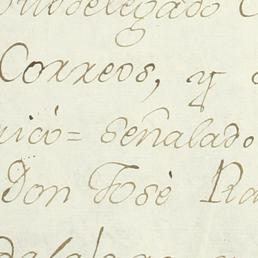 Subdelegado
Correos, y
ricó= señalado
Don José Ra